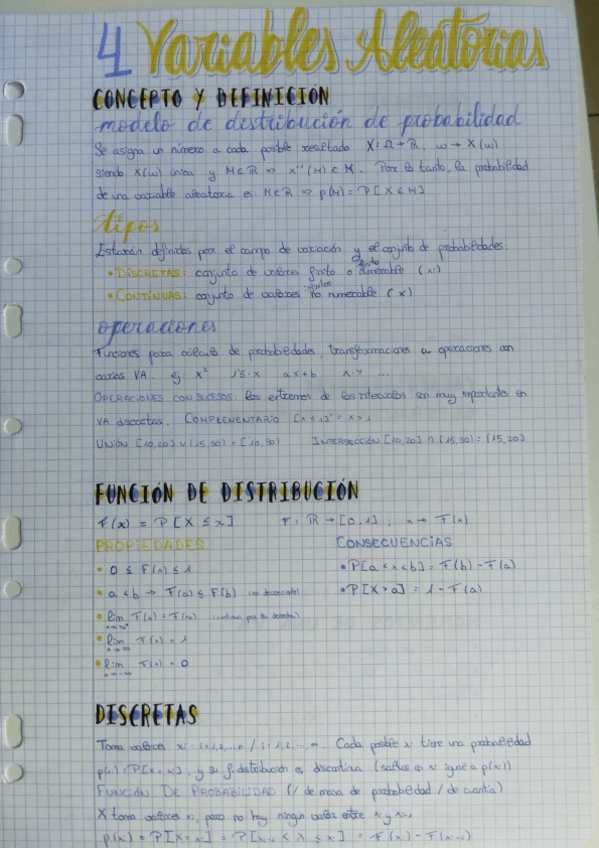 4 Variables Aleatorias
CONCEPTO Y DEFINICIÓN
modelo de distribución de probabilidad
Se asigna un número a cada posible resultado X: Ω → R, w → X(w)
siendo X(w) única y M ∈ R ⇒ x⁻¹(M) ∈ M. Por lo tanto, la probabilidad
de una variable aleatoria es: M ∈ R ⇒ p(M) = P[X ∈ M]
tipos
Estarán definidos por el campo de variación y el conjunto de probabilidades:
• DISCRETAS: conjunto de valores finito o numerable (xi)
• CONTINUAS: conjunto de valores infinitos no numerable (x)
operaciones
Funciones para cálculo de probabilidades, transformaciones u operaciones con
varias VA. ej. x² 1'5·x ax+b x·y ...
OPERACIONES CON SUCESOS: los extremos de los intervalos son muy importantes en
VA discretas. COMPLEMENTARIO [x ≤ 1]ᶜ = x > 1
UNIÓN [10,20] ∪ (15,30) = [10,30) INTERSECCIÓN [10,20] ∩ (15,30) = (15,20]
FUNCIÓN DE DISTRIBUCIÓN
F(x) = P[X ≤ x] F: R → [0,1] ; x → F(x)
PROPIEDADES CONSECUENCIAS
• 0 ≤ F(x) ≤ 1 • P[a < x < b] = F(b) - F(a)
• a < b → F(a) ≤ F(b) (no decreciente) • P[X > a] = 1 - F(a)
• lim F(x) = F(x₀) (continua por la derecha)
• lim F(x) = 1
x→∞
• lim F(x) = 0
x→-∞
DISCRETAS
Toma valores xi: i=1,2,...n / i=1,2,...,∞. Cada posible xi tiene una probabilidad
p(xi) = P[X = xi], y su f. distribución es discontinua (saltos en xi igual a p(xi))
FUNCIÓN DE PROBABILIDAD (/ de masa de probabilidad / de cuantía)
X toma valores xi, pero no hay ningún valor entre xi y xi-1
p(xi) = P[X = xi] = P[xi-1 < X ≤ xi] = F(xi) - F(xi-1)